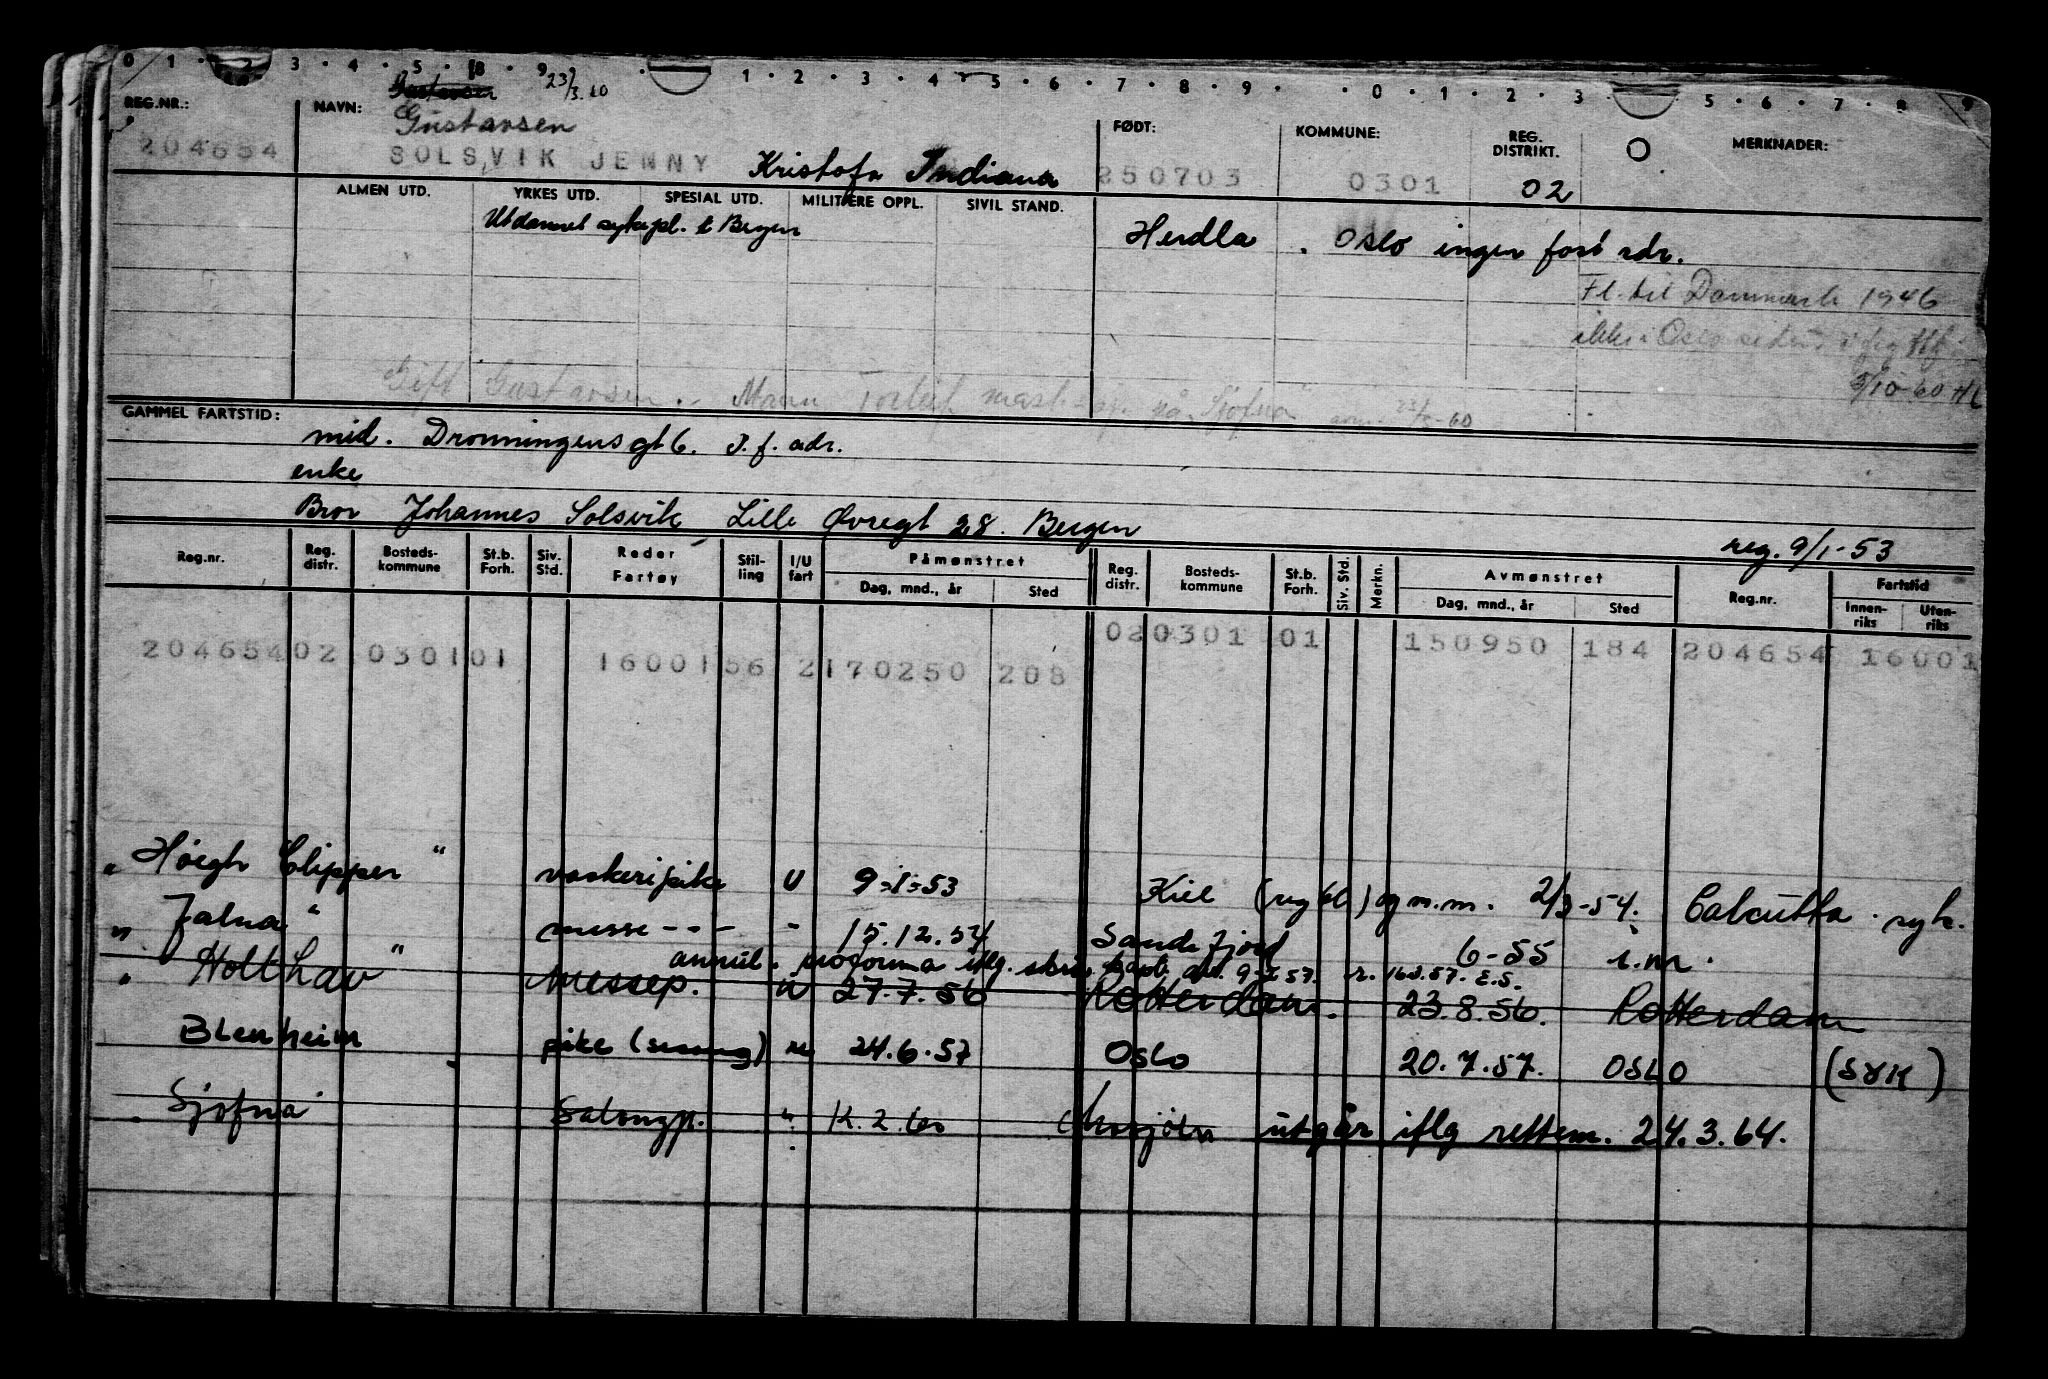 0 1 2 3 4 5 8 9 1 2 3 4 5 6 7 8 9 0 1 2 3 5 6 7 8 9
Gustavsen 23/3.60
REG.NR.: NAVN: Gustavsen FØDT: KOMMUNE: REG. DISTRIKT. MERKNADER:
204654 SOLSVIK JENNY Kristofa Indiana 250703 0301 02
ALMEN UTD. YRKES UTD. SPESIAL UTD. MILITÆRE OPPL. SIVIL STAND.
Utdannet sykepl. t Bergen Herdla . Oslo ingen fast adr.
Fl. til Danmark 1946
ikke i Oslo siden
5/10-60 HL
Gift Gustavsen. Mann Torleif mask på "Sjofna" 23/3-60
GAMMEL FARTSTID:
mid. Dronningensgt 6. I. f. adr.
enke
Bror Johannes Solsvik Lille Øvregt 28. Bergen
reg. 9/1-53
Reg.nr. Reg. distr. Bosteds-kommune St.b. Forh. Siv. Std. Reder Fartøy Stil-ling I/U fart Påmønstret Dag, mnd., år Sted Reg. distr. Bosteds-kommune St.b. Forh. Siv. Std. Merkn. Avmønstret Dag, mnd., år Sted Reg.nr. Fartstid Innen-riks Uten-riks
204654 02 0301 01 16001 56 2 170250 208 02 0301 01 150950 184 204654 16001
"Høegh Clipper" vaskeripike U 9-1-53 Kiel (reg bl) og m.m. 2/3-54. Calcutta. syk.
"Jalna" messe - - - - 15.12.54 Sandefjord 6-55 i.m.
annul. proforma iflg. skriv kapt. dat. 9-1 57. r. 16/1.57. E.S.
"Holthav" Messep. U 27.7.56 Rotterdam. 23.8.56. Rotterdam
Blenheim pike (sesong) u 24.6.57 Oslo 20.7.57. OSLO (SYK)
"Sjofna" Salongp. " 12.2.60 Mosjøen utgår iflg rettem. 24.3.64.